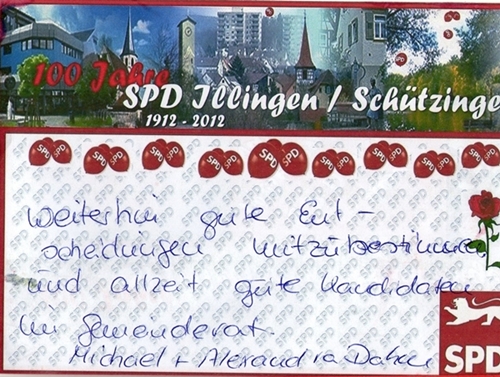 100 Jahre
SPD Illingen / Schützinge
1912 - 2012
SPD SPD SPD SPD SPD SPD SPD SPD
weiterhin gute Ent-
scheidungen mitzubestimmen
und allzeit gute Kandidaten
im Gemeinderat.
Michael + Alexandra
SPD